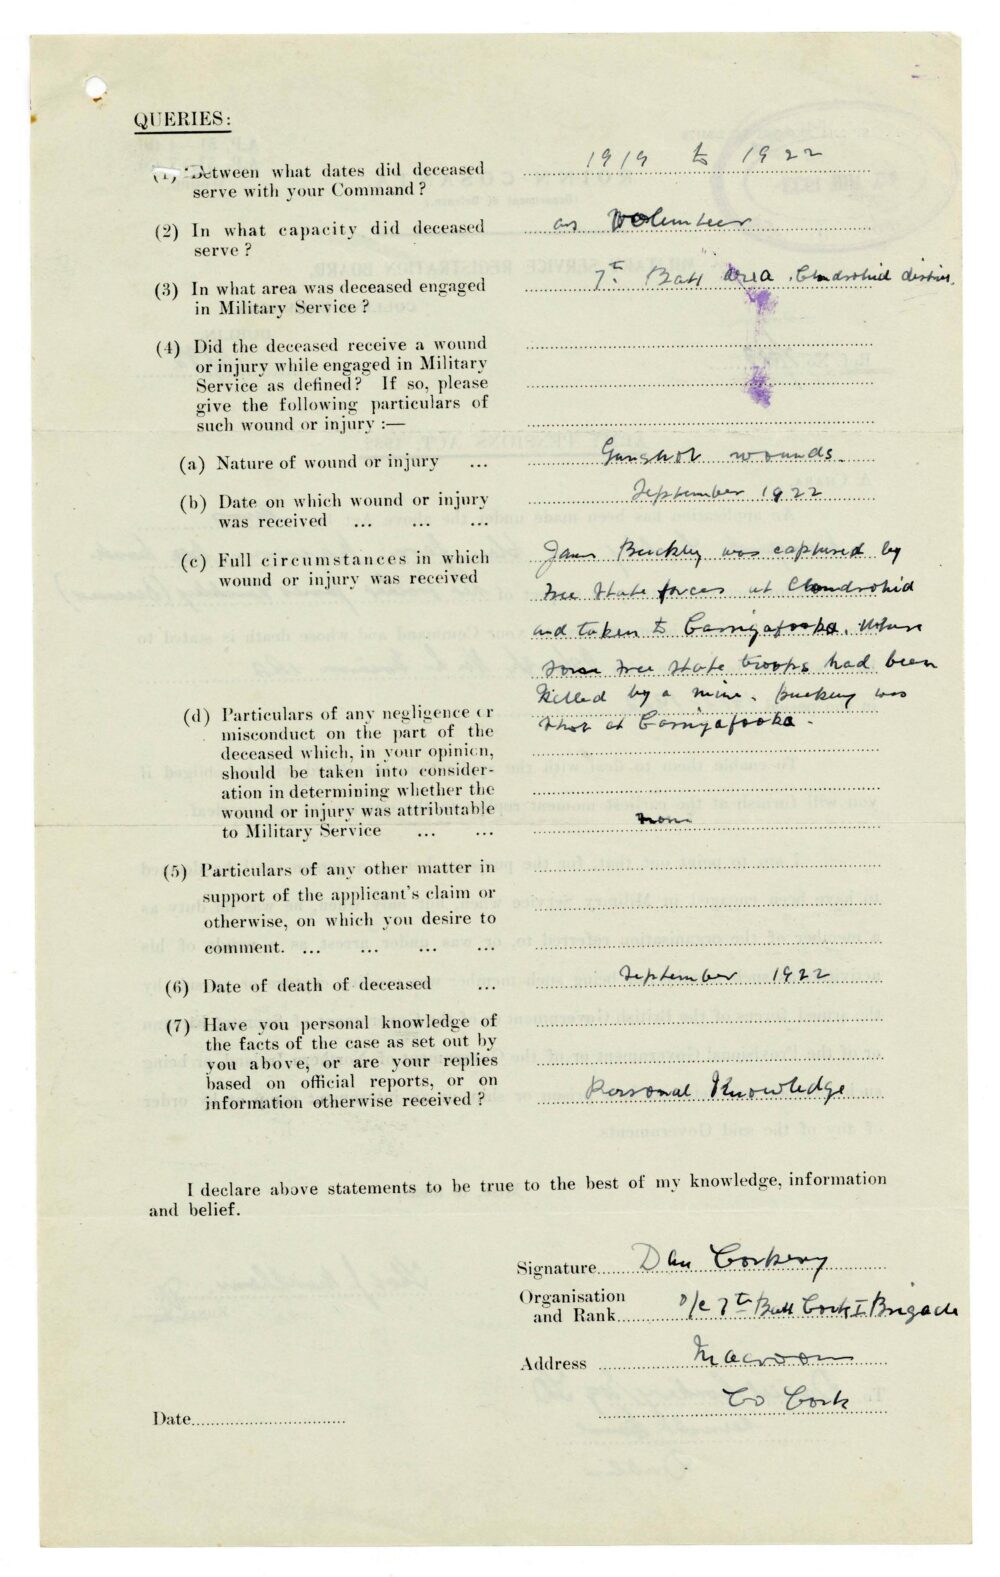 QUERIES:
(1) Between what dates did deceased
serve with your Command?
1919 to 1922
(2) In what capacity did deceased
serve?
as Volunteer
(3) In what area was deceased engaged
in Military Service?
7th Batt area. Clondrohid district.
(4) Did the deceased receive a wound
or injury while engaged in Military
Service as defined? If so, please
give the following particulars of
such wound or injury :—
(a) Nature of wound or injury ...
Gunshot wounds.
(b) Date on which wound or injury
was received ... ... ...
September 1922
(c) Full circumstances in which
wound or injury was received
James Buckley was captured by
Free State forces at Clondrohid
and taken to Carrigafooka. Where
some Free State troops had been
killed by a mine. Buckley was
shot at Carrigafooka.
(d) Particulars of any negligence or
misconduct on the part of the
deceased which, in your opinion,
should be taken into consider-
ation in determining whether the
wound or injury was attributable
to Military Service ... ...
none
(5) Particulars of any other matter in
support of the applicant's claim or
otherwise, on which you desire to
comment. ... ... ... ...
(6) Date of death of deceased ...
September 1922
(7) Have you personal knowledge of
the facts of the case as set out by
you above, or are your replies
based on official reports, or on
information otherwise received?
Personal Knowledge
I declare above statements to be true to the best of my knowledge, information
and belief.
Signature Dan Corkery
Organisation
and Rank O/C 7th Batt Cork I Brigade
Address Macroom
Co Cork
Date